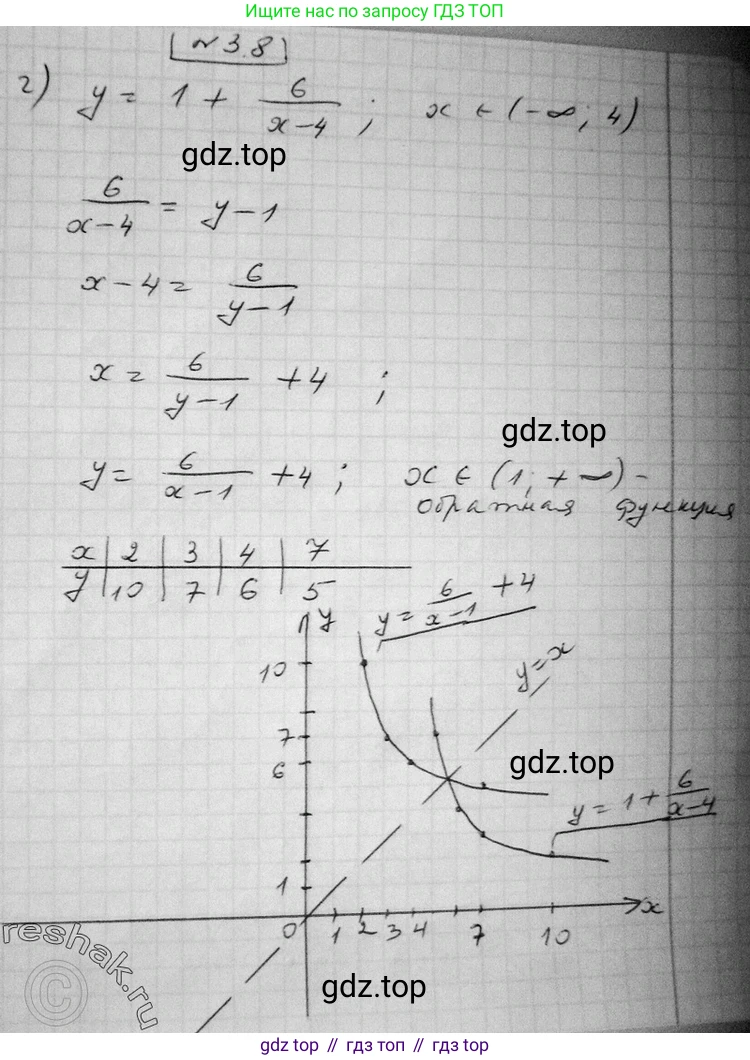 Ищите нас по запросу ГДЗ ТОП
№3.8
г) y = 1 + 6/(x-4) ; x ∈ (-∞; 4)
gdz.top
6/(x-4) = y-1
x-4 = 6/(y-1)
x = 6/(y-1) +4 ;
gdz.top
y = 6/(x-1) +4 ; x ∈ (1; +∞) -
обратная функция
x | 2 | 3 | 4 | 7
y | 10 | 7 | 6 | 5
y
y = 6/(x-1) +4
y=x
10
7
6
gdz.top
y = 1 + 6/(x-4)
1
0 1 2 3 4 7 10 x
reshak.ru
©
gdz.top
gdz top // гдз топ // gdz top